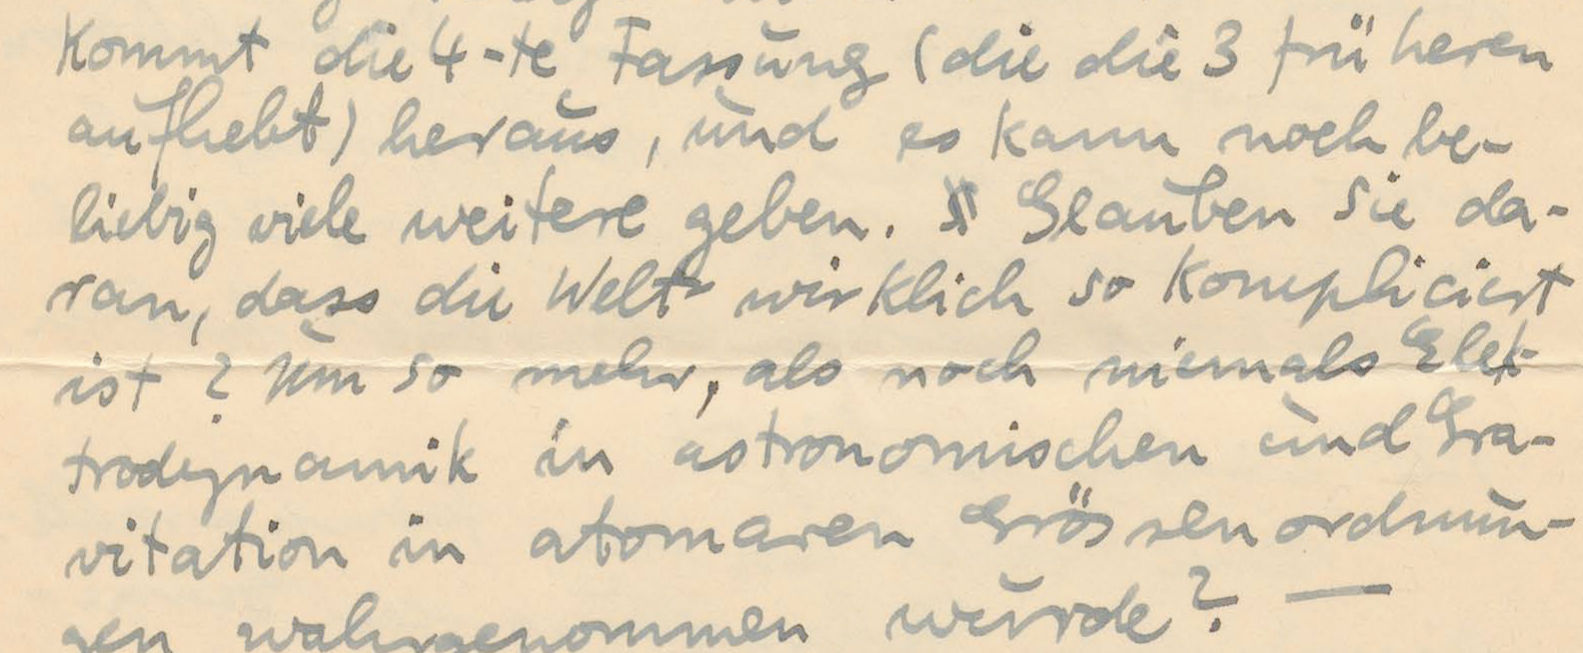 kommt die 4-te Fassung (die die 3 früheren
aufhebt) heraus, und es kann noch be-
liebig viele weitere geben. Glauben Sie da-
ran, dass die Welt wirklich so kompliciert
ist? Um so mehr, als noch niemals Elek-
trodynamik in astronomischen und Gra-
vitation in atomaren Grössenordnun-
gen wahrgenommen wurde? —